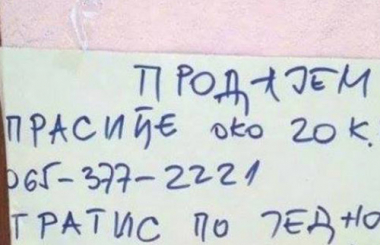 ПРОДАЈЕМ
ПРАСИ�ЋЕ око 20 К.
065-377-2221
ГРАТИС ПО ЈЕДНО